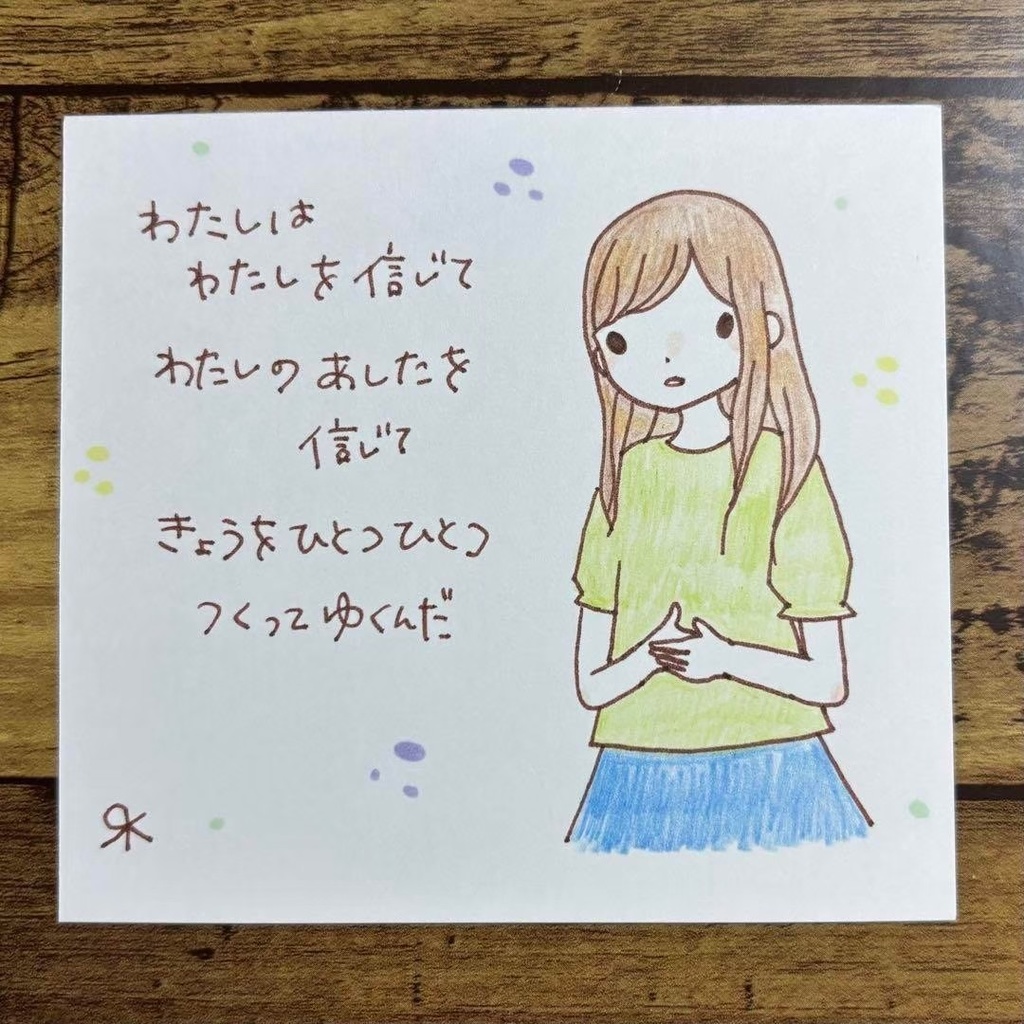 わたしは
わたしを信じて
わたしのあしたを
信じて
きょうをひとつひとつ
つくってゆくんだ